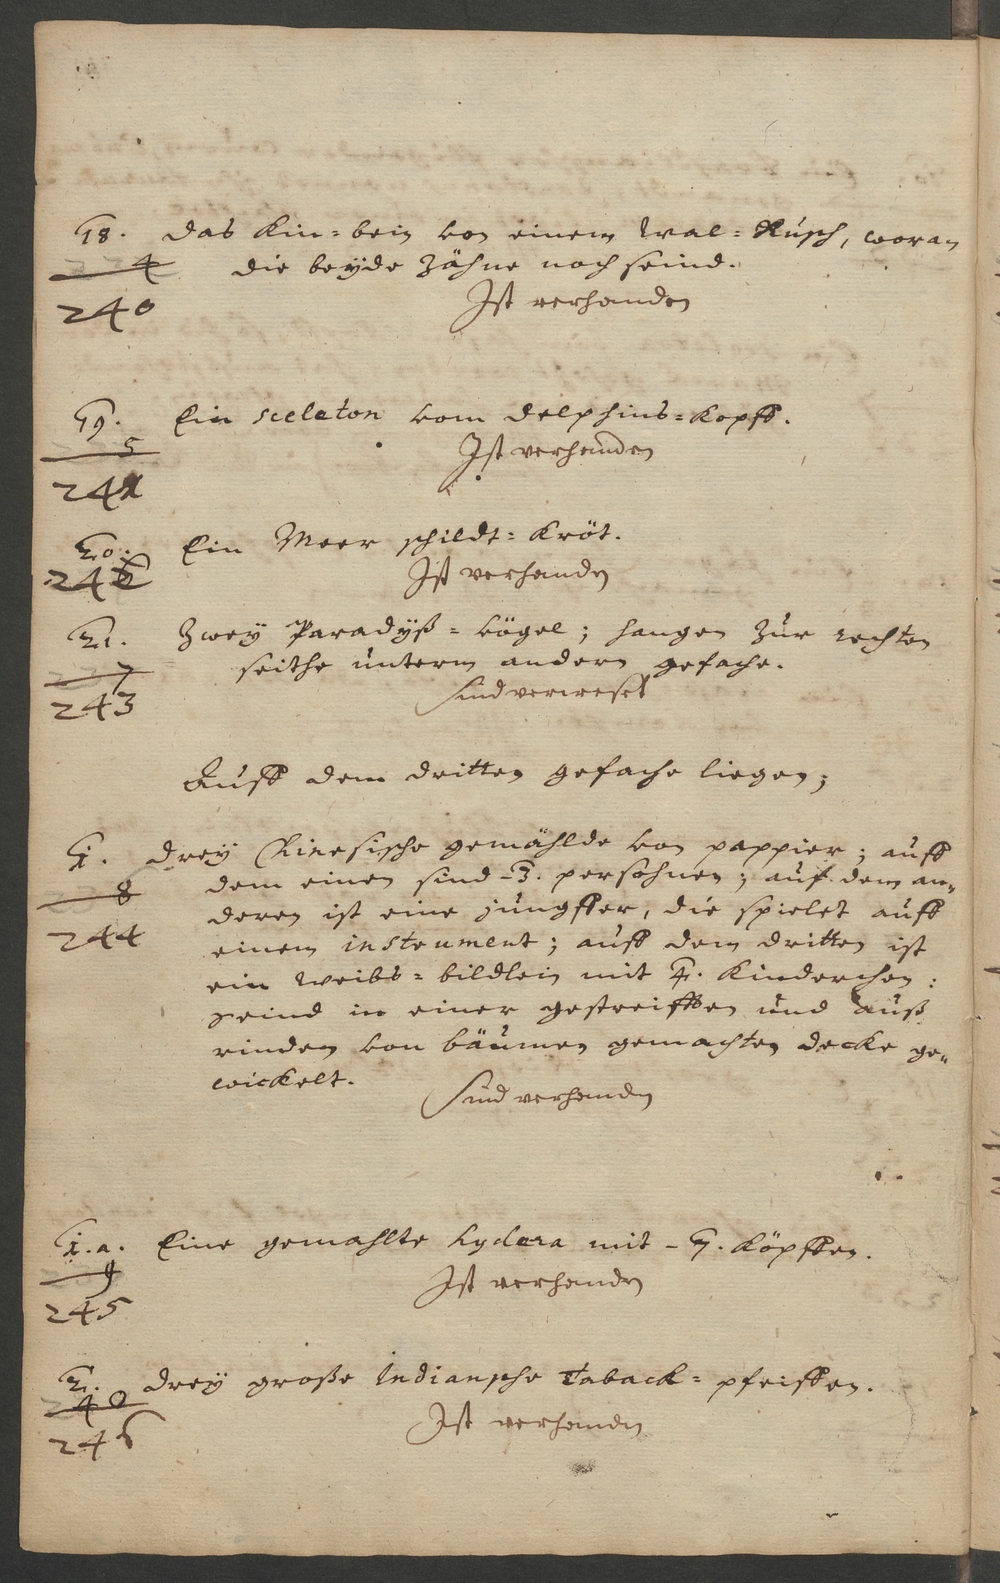 18. das Kin=bein von einem Wal=Rusch, woran
4 die beyde Zähne noch seind.
240 Ist verhanden
19. Ein sceleton vom delphins=Kopff.
5 Ist verhanden
241
20. Ein Meer schildt=Kröt.
242 Ist verhanden
21. Zwey Paradÿß=vögel; hangen zur rechten
7 seithe unterm andern gefache.
243 sind verweset
Auff dem dritten gefache liegen;
1. drey Chinesische gemählde von pappier; auff
8 dem einen sind -3. persohnen; auf dem an„
244 deren ist eine jungffer, die spielet auff
einem instrument; auff dem dritten ist
ein weibs=bildlein mit 4. Kinderchen:
seind in einer gestreifften und auß
rinden von bäumen gemachten decke ge„
wickelt.
Sind verhanden
1.a. Eine gemahlte hydera mit -7. Köpffen.
9 Ist verhanden
245
2. drey große indiansche Taback=pfeiffen.
40 Ist verhanden
246